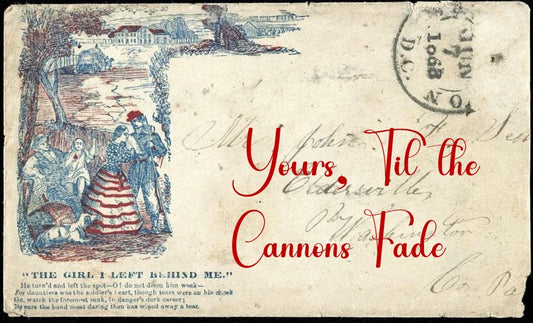 "THE GIRL I LEFT BEHIND ME."
He turn'd and left the spot—O! do not deem him weak—
For dauntless was the soldier's heart, though tears were on his cheek
Go, watch the foremost rank, in danger's dark career;
Be sure the hand most daring then has wiped away a tear.
D.C.
Mr. John H
Yours, Til the
Cannons Fade
Washington
Co Pa